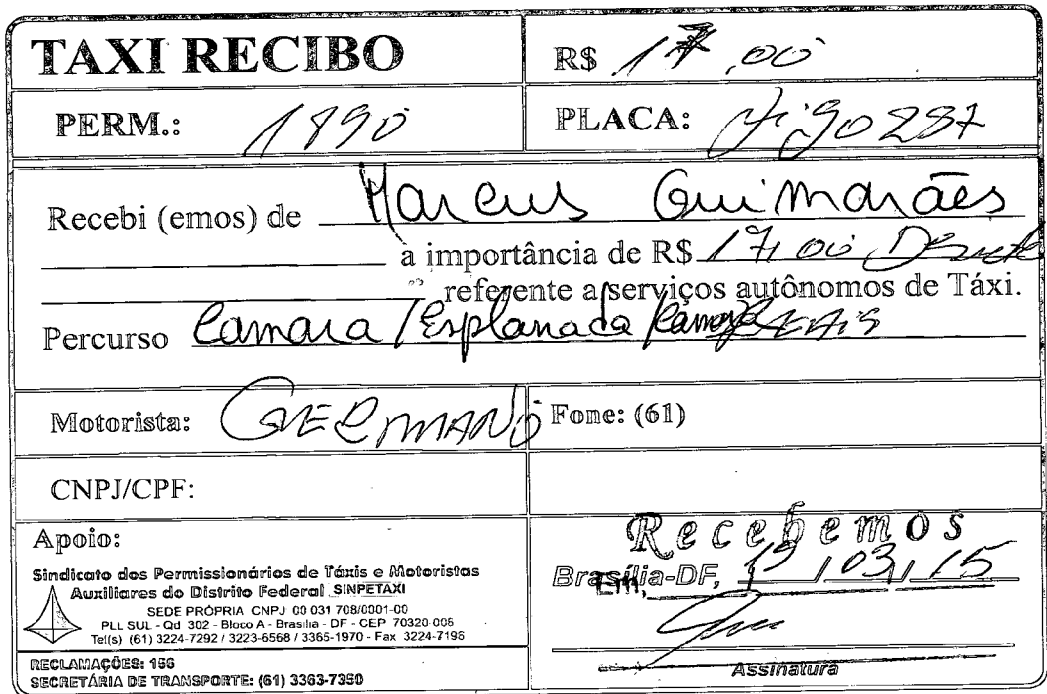 TAXI RECIBO
R$ 17,00
PERM.: 1890
PLACA:
Recebi (emos) de Marcus Guimarães
a importância de R$ 17,00
referente a serviços autônomos de Táxi.
Percurso Camara/Esplanada/Camara
Motorista: GERMANO
Fone: (61)
CNPJ/CPF:
Apoio:
Sindicato dos Permissionários de Táxis e Motoristas
Auxiliares do Distrito Federal SINPETAXI
SEDE PRÓPRIA CNPJ 00 031 708/0001-00
PLL SUL - Qd 302 - Bloco A - Brasília - DF - CEP 70320-006
Tel(s) (61) 3224-7292 / 3223-6568 / 3365-1970 - Fax 3224-7196
RECLAMAÇÕES: 156
SECRETÁRIA DE TRANSPORTE: (61) 3363-7350
Recebemos
Brasília-DF, 19/03/15
Em,
Assinatura